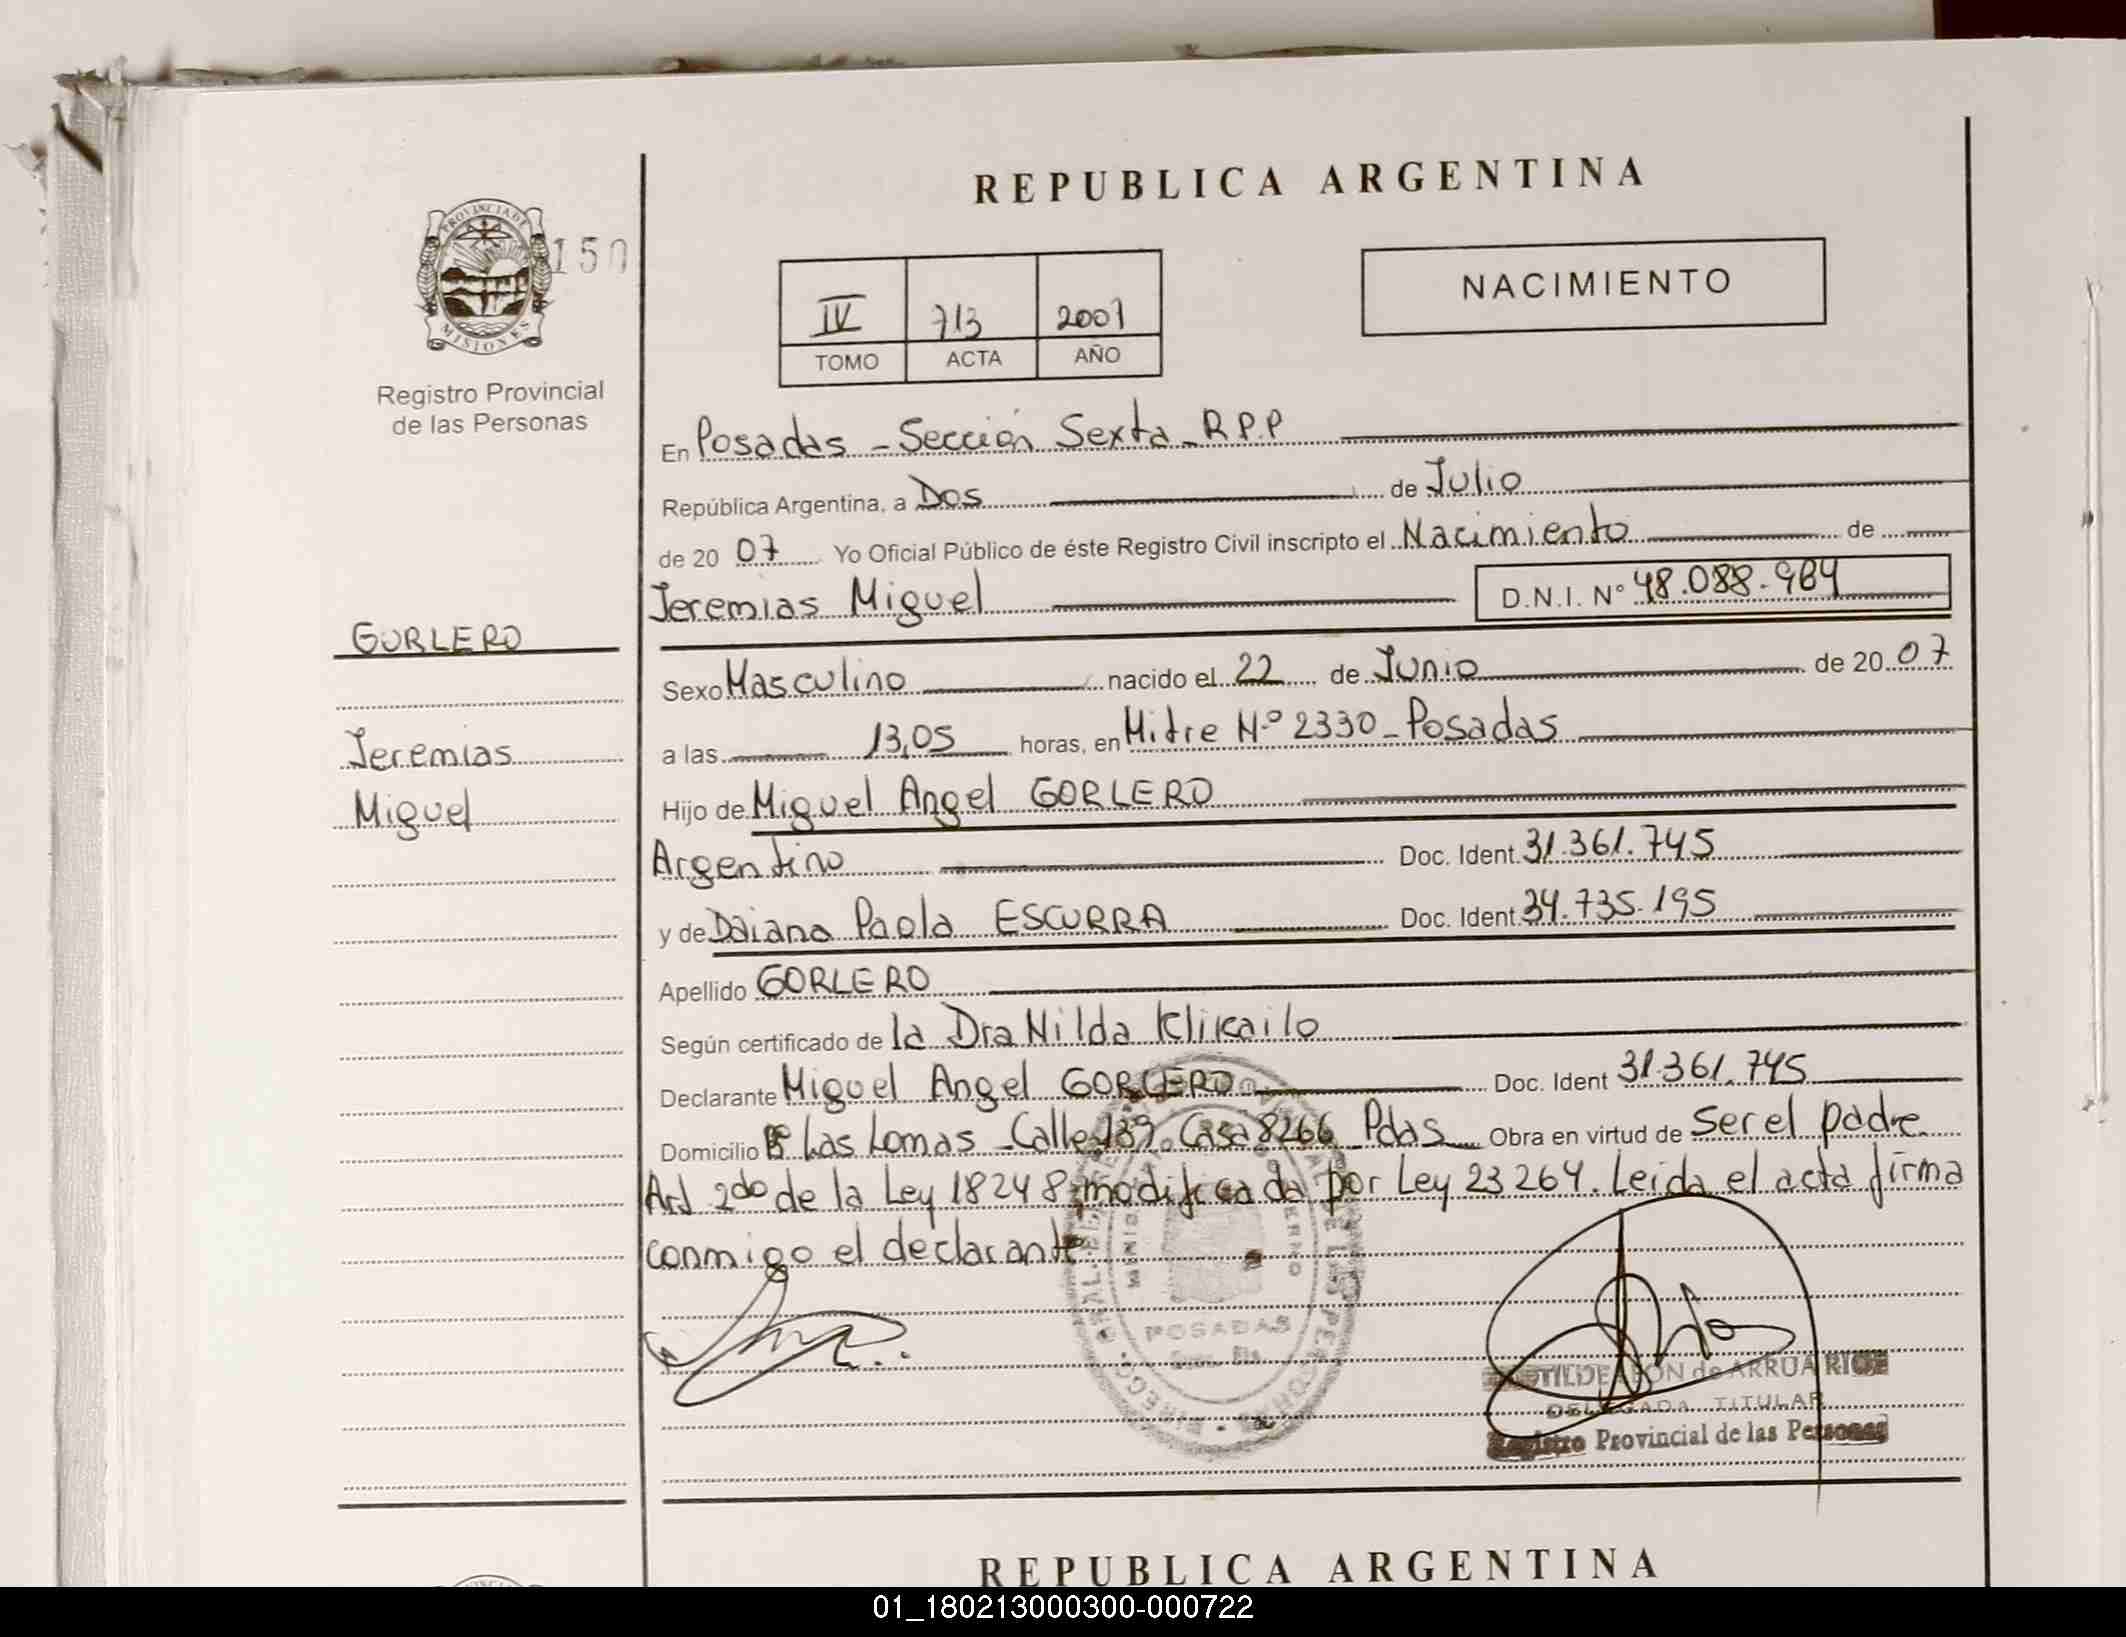 REPUBLICA ARGENTINA
PROVINCIA DE
MISIONES
150
Registro Provincial
de las Personas
IV 713 2007
TOMO ACTA AÑO
NACIMIENTO
En Posadas - Sección Sexta - R.P.P
República Argentina, a Dos de Julio
de 20 07 Yo Oficial Público de éste Registro Civil inscripto el Nacimiento de
Jeremias Miguel D.N.I. Nº 48.088.964
GORLERO
Sexo Masculino nacido el 22 de Junio de 20 07
Jeremias
a las 13,05 horas, en Mitre Nº 2330 - Posadas
Miguel
Hijo de Miguel Angel GORLERO
Argentino Doc. Ident. 31.361.745
y de Daiana Paola ESCURRA Doc. Ident. 34.735.195
Apellido GORLERO
Según certificado de la Dra Nilda Klikailo
Declarante Miguel Angel GORLERO Doc. Ident 31.361.745
Domicilio Bº Las Lomas - Calle 139 Casa 8266 Pdas Obra en virtud de Ser el padre
Art 2do de la Ley 18248 modificada por Ley 23264. Leida el acta firma
conmigo el declarante
POSADAS
de ARRUA RIOS
DELEGADA TITULAR
Registro Provincial de las Personas
REPUBLICA ARGENTINA
01_180213000300-000722